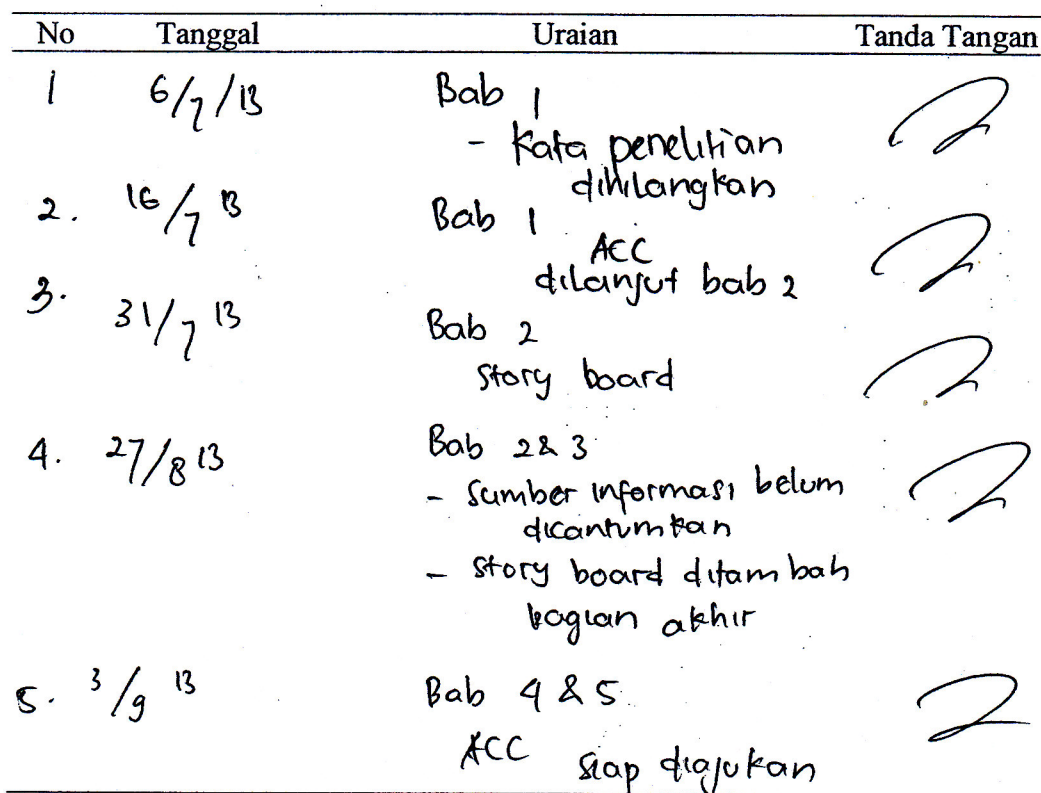 No Tanggal Uraian Tanda Tangan
1 6/7/13 Bab 1
- Kata penelitian
dihilangkan
2. 16/7 13 Bab 1
ACC
dilanjut bab 2
3. 31/7 13 Bab 2
Story board
4. 27/8 13 Bab 2 & 3
- Sumber informasi belum
dicantumkan
- Story board ditambah
bagian akhir
5. 3/9 13 Bab 4 & 5
ACC siap diajukan